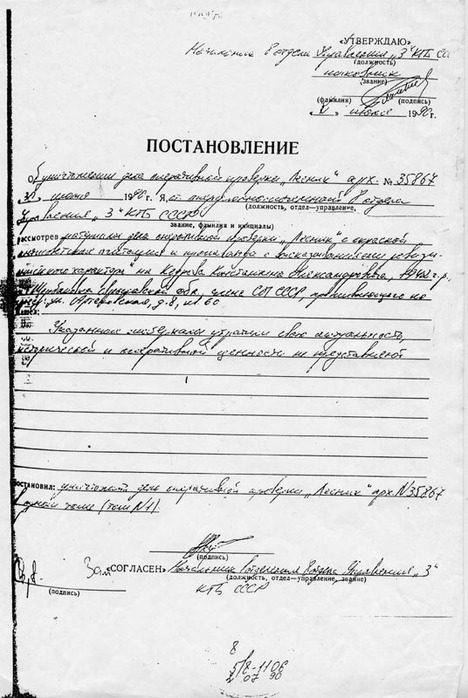 «УТВЕРЖДАЮ»
Начальник 8 отдела Управления „З" КГБ СССР
(должность)
полковник
(звание)
(фамилия) (подпись)
июля 1990 г.
ПОСТАНОВЛЕНИЕ
Об уничтожении дела оперативной проверки „Лесник" арх. № 35867
июля 1990 г. Я, ст. оперуполномоченный 8 отдела
(должность, отдел—управление,
Управления „З" КГБ СССР
звание, фамилия и инициалы)
рассмотрев материалы дела оперативной проверки „Лесник" с окраской
антисоветская агитация и пропаганда с
характера" на Кедрова Константина Александровича, 1942 г.р.
обл., члена СП СССР, проживающего по
ул. Артековская, д. 8, кв. 60
Указанные материалы утратили свою актуальность,
исторической и оперативной ценности не представляют
Постановил: уничтожить дело оперативной проверки „Лесник" арх. № 35867
в одном томе (том №1).
(подпись)
Зам «СОГЛАСЕН» Начальник отделения 8 отдела Управления „З"
(подпись) (должность, отдел—управление, звание)
КГБ СССР
8
5/8-1106
07 90